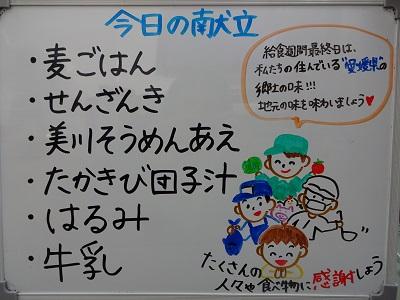 今日の献立
・麦ごはん
・せんざんき
・美川そうめんあえ
・たかきび団子汁
・はるみ
・牛乳
給食週間最終日は、
私たちの住んでいる"愛媛県"の
郷土の味!!!
地元の味を味わいましょう♥
たくさんの
人々や食べ物に感謝しょう